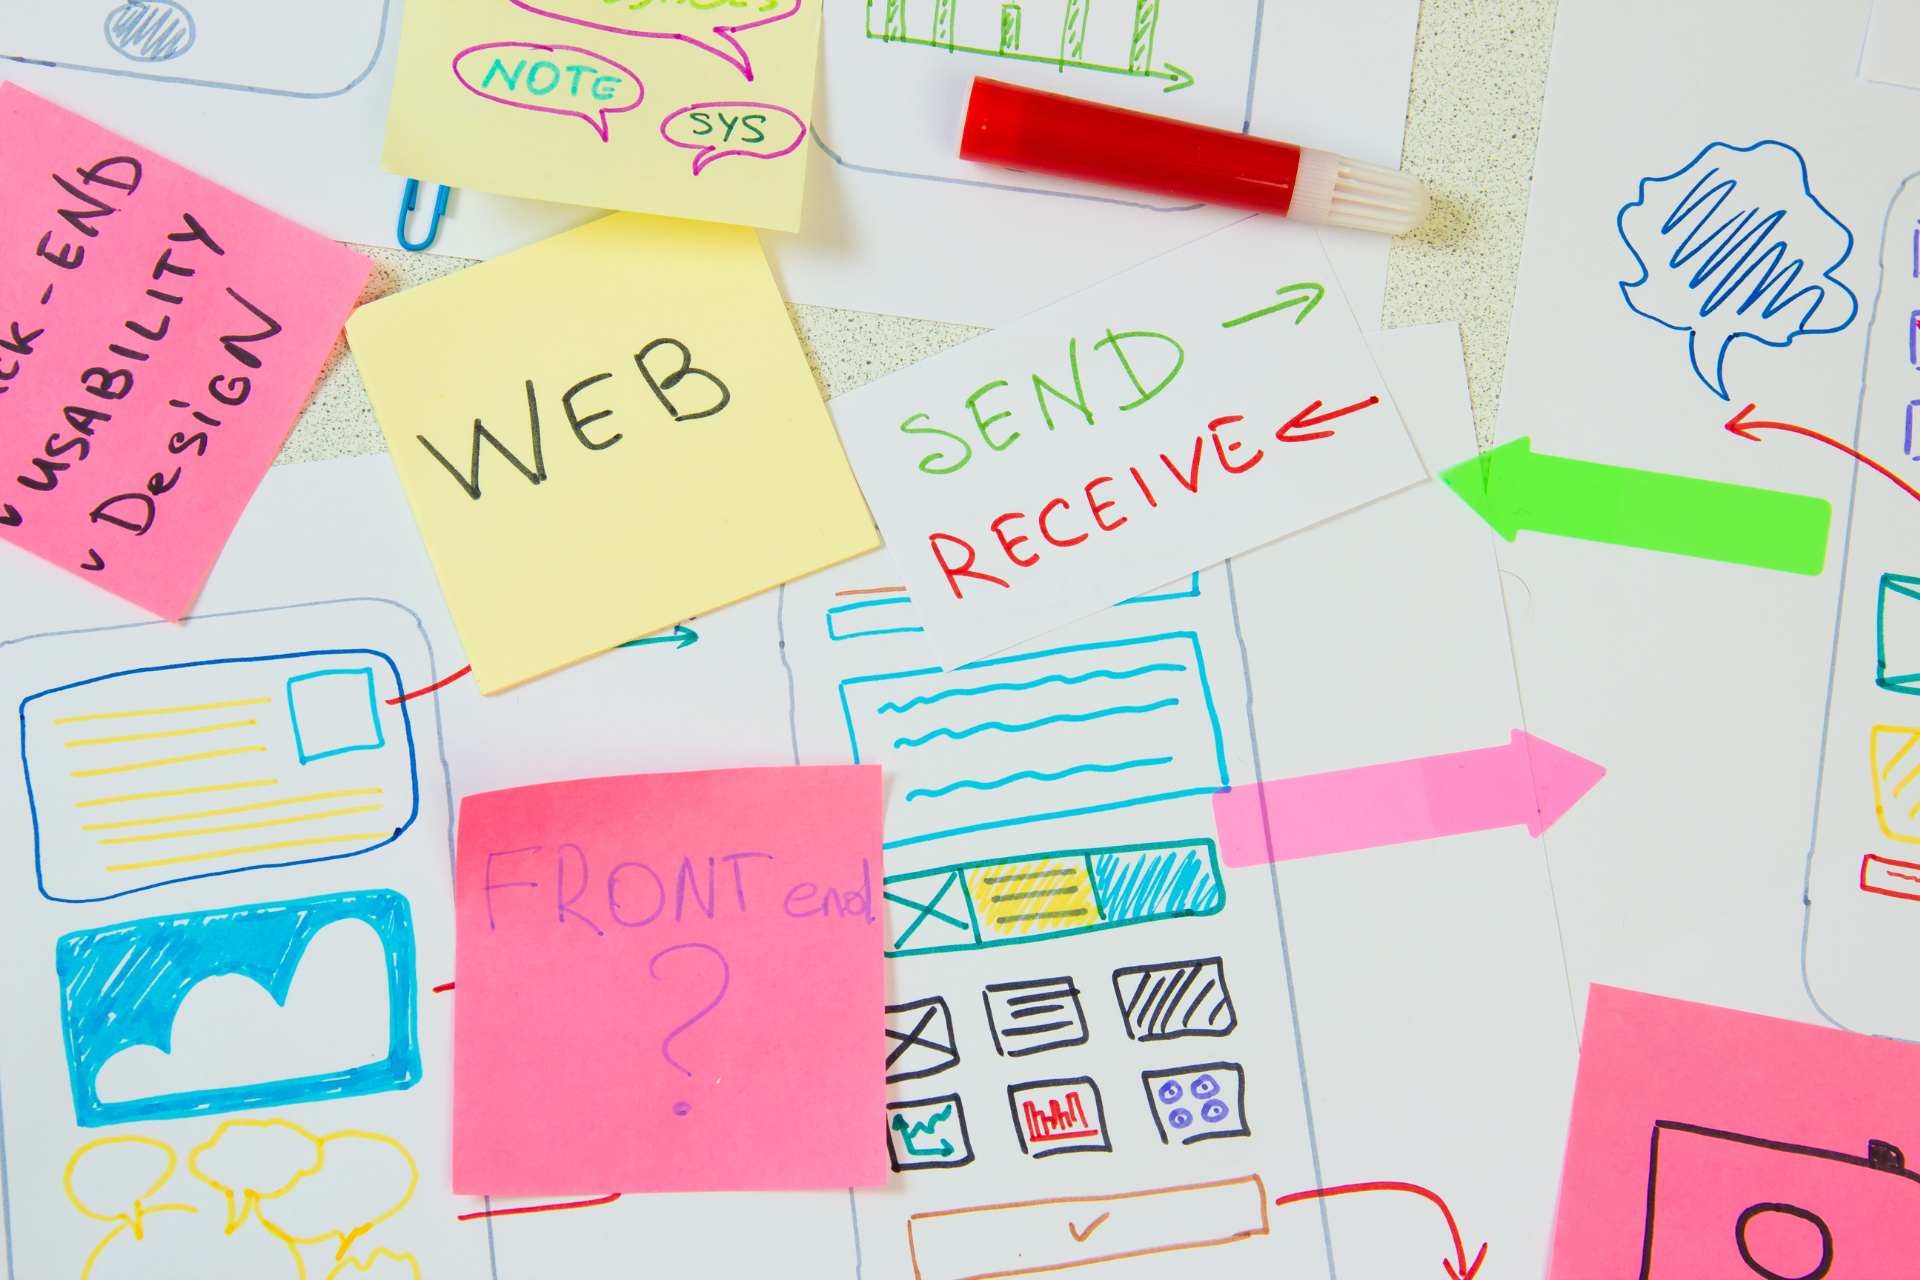 NOTE
SYS
END
USABILITY
DesiGN
WEB
SEND
RECEIVE
FRONT end
?